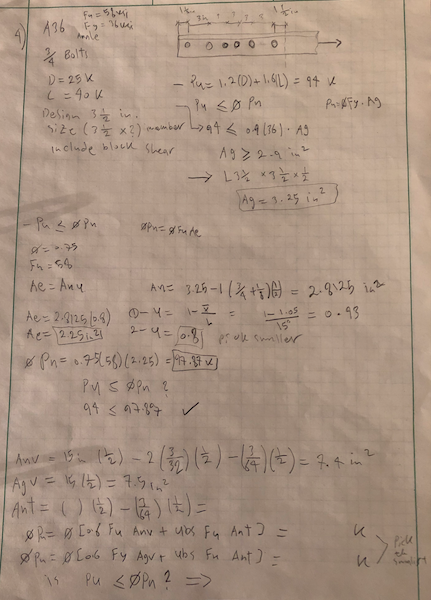 4) A36 Fu = 58 ksi
Fy = 36 ksi
Angle
3/4 Bolts
D = 25 K
L = 40 K
Design 3 1/2 in.
size (3 1/2 x ?) member
include block shear
1 1/2 in
3in 3 3 3
1 1/2 in
- Pu = 1.2(D) + 1.6(L) = 94 K
Pu ≤ ØPn
Pn = ØFy · Ag
→ 94 ≤ 0.9(36) · Ag
Ag ≥ 2.9 in²
→ L3 1/2 x 3 1/2 x 1/2
Ag = 3.25 in²
- Pu ≤ ØPn
ØPn = ØFuAe
Ø = 0.75
Fu = 58
Ae = An u
An = 3.25 - 1 (3/4 + 1/8)(1/2) = 2.8125 in²
Ae = 2.8125(0.8)
Ae = 2.25 in²
① - U = 1 - x̄/L = 1 - 1.05/15 = 0.93
2 - U = 0.8 pick smaller
ØPn = 0.75(58)(2.25) = 97.87 K
Pu ≤ ØPn ?
94 ≤ 97.87 ✓
Anv = 15in (1/2) - 2 (3/32)(1/2) - (3/64)(1/2) = 7.4 in²
Agv = 15(1/2) = 7.5 in²
Ant = ( )(1/2) - (3/64)(1/2) =
ØPn = Ø[0.6 Fu Anv + Ubs Fu Ant] = K
ØPn = Ø[0.6 Fy Agv + Ubs Fu Ant] = K
Pick
smallest
is Pu ≤ ØPn ? ⇒